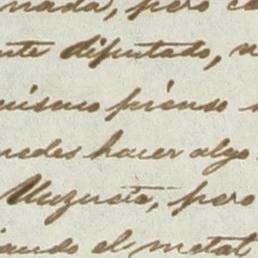 nada, pero
ente diputado,
mismo pienso
puedes hacer algo
pero
ando el metal